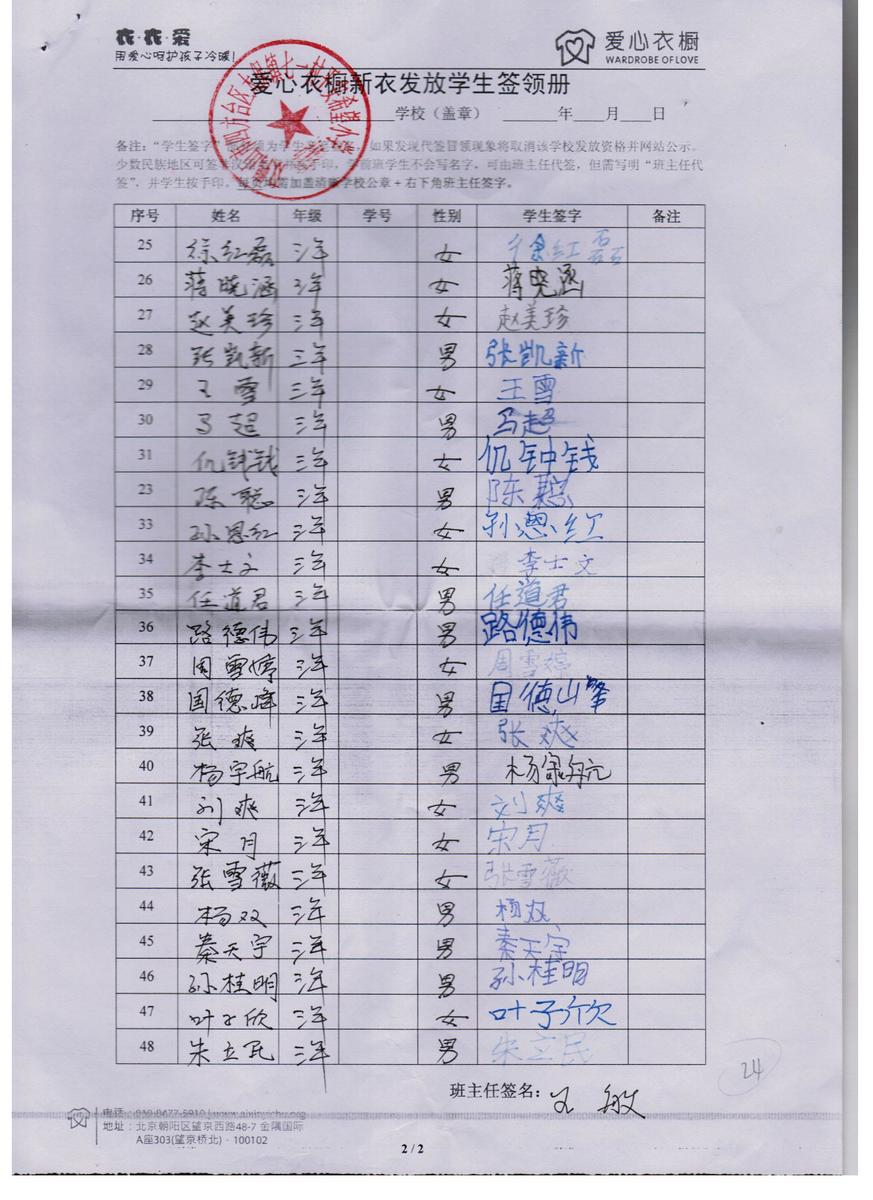 衣·衣·爱
用爱心呵护孩子冷暖!
爱心衣橱
WARDROBE OF LOVE
爱心衣橱新衣发放学生签领册
学校（盖章） 年 月 日
备注：“学生签字” 如果发现代签冒领现象将取消该学校发放资格并网站公示。
少数民族地区可签 手印，学前班学生不会写名字，可由班主任代签，但需写明“班主任代
签”，并学生按手印。每页均需加盖清晰学校公章+右下角班主任签字。
序号 姓名 年级 学号 性别 学生签字 备注
25 徐红磊 三年 女 徐红磊
26 蒋晓涵 三年 女 蒋晓涵
27 赵美珍 三年 女 赵美珍
28 张凯新 三年 男 张凯新
29 王雪 三年 女 王雪
30 马超 三年 男 马超
31 仉钟钱 三年 女 仉钟钱
23 陈聪 三年 男 陈聪
33 孙恩红 三年 女 孙恩红
34 李士文 三年 女 李士文
35 任道君 三年 男 任道君
36 路德伟 三年 男 路德伟
37 周雪婷 三年 女 周雪婷
38 国德峰 三年 男 国德峰
39 张爽 三年 女 张爽
40 杨宇航 三年 男 杨 航
41 刘爽 三年 女 刘爽
42 宋月 三年 女 宋月
43 张雪薇 三年 女 张雪薇
44 杨双 三年 男 杨双
45 秦天宇 三年 男 秦天宇
46 孙桂明 三年 男 孙桂明
47 叶子欣 三年 女 叶子欣
48 朱立民 三年 男 朱立民
24
班主任签名：王敏
电话：010-8477-5910 | www.aixinyichu.org
地址：北京朝阳区望京西路48-7 金隅国际
A座303(望京桥北) · 100102
2 / 2